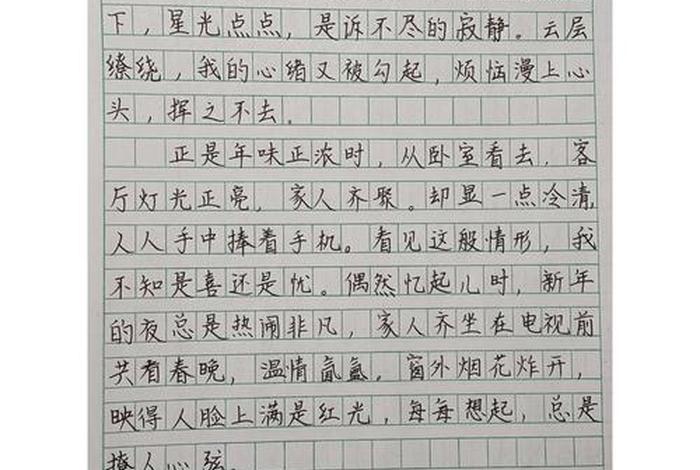 下，星光点点，是诉不尽的寂静。云层
缭绕，我的心绪又被勾起，烦恼漫上心
头，挥之不去。
正是年味正浓时，从卧室看去，客
厅灯光正亮，家人齐聚。却显一点冷清，
人人手中捧着手机。看见这般情形，我
不知是喜还是忧。偶然忆起儿时，新年
的夜总是热闹非凡，家人齐坐在电视前
共看春晚，温情氤氲，窗外烟花炸开，
映得人脸上满是红光，每每想起，总是
撩人心弦。